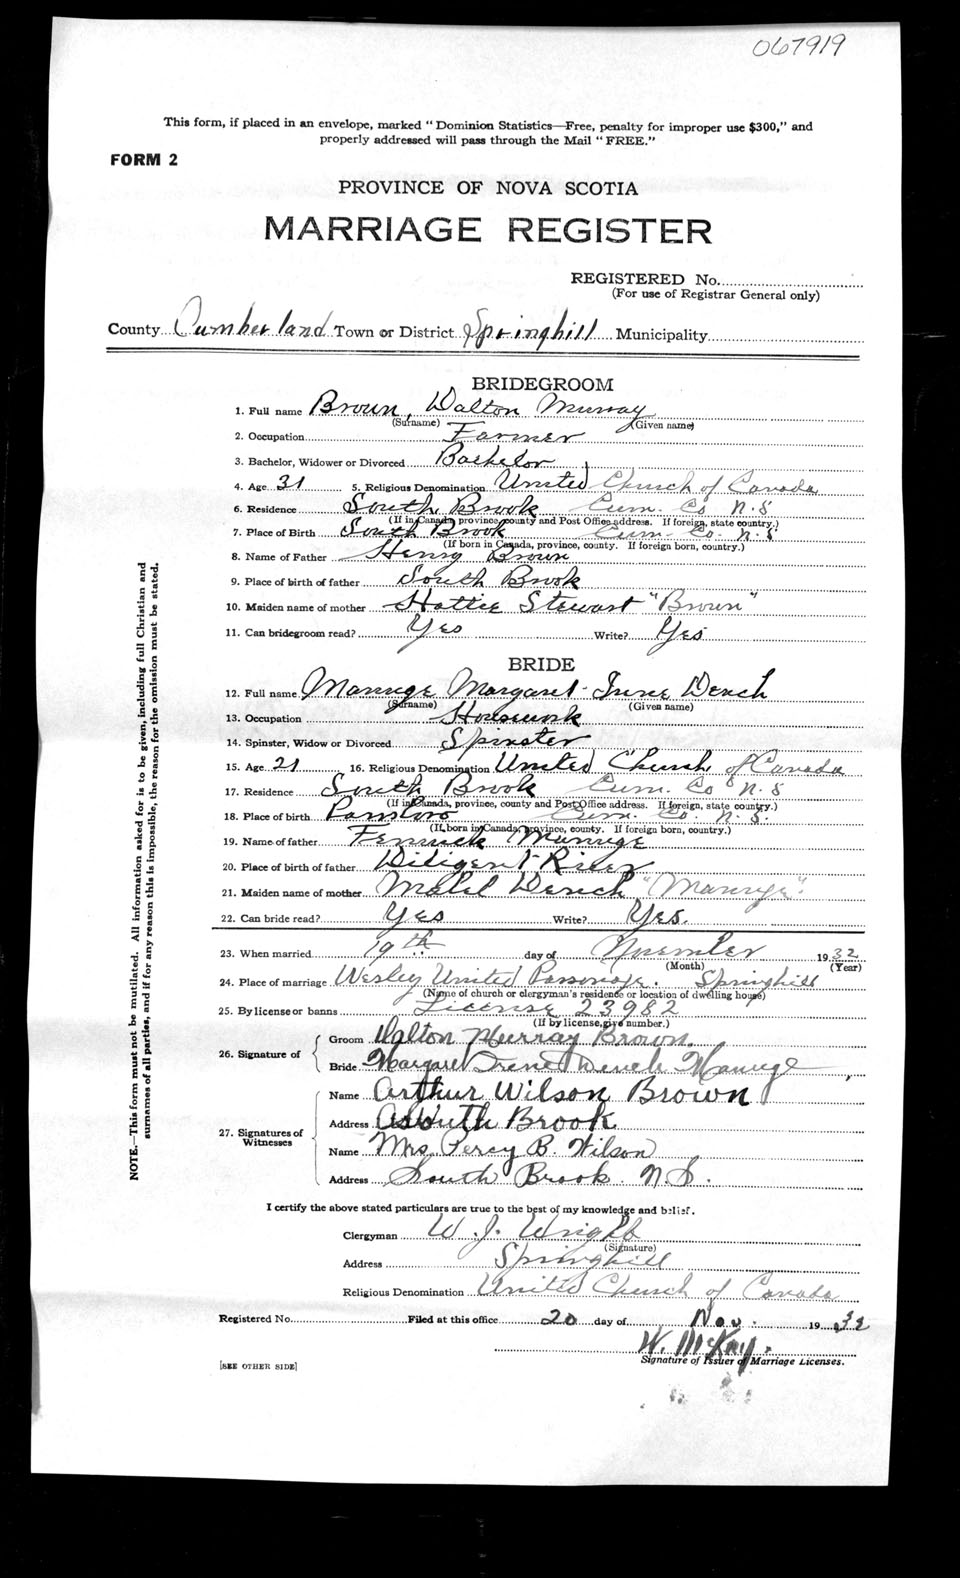 067919
This form, if placed in an envelope, marked "Dominion Statistics—Free, penalty for improper use $300," and
properly addressed will pass through the Mail "FREE."
FORM 2
PROVINCE OF NOVA SCOTIA
MARRIAGE REGISTER
REGISTERED No.
(For use of Registrar General only)
County Cumberland Town or District Springhill Municipality
BRIDEGROOM
1. Full name Brown, Dalton Murray
(Surname) (Given name)
2. Occupation Farmer
3. Bachelor, Widower or Divorced Bachelor
4. Age 31 5. Religious Denomination United Church of Canada
6. Residence South Brook Cum. Co N.S
(If in Canada, province, county and Post Office address. If foreign, state country.)
7. Place of Birth South Brook Cum. Co. N.S
(If born in Canada, province, county. If foreign born, country.)
8. Name of Father Henry Brown
9. Place of birth of father South Brook
10. Maiden name of mother Hattie Stewart "Brown"
11. Can bridegroom read? Yes Write? Yes
BRIDE
12. Full name Margaret
(Surname) (Given name)
13. Occupation Housework
14. Spinster, Widow or Divorced Spinster
15. Age 21 16. Religious Denomination United Church of Canada
17. Residence South Brook Cum. Co N.S
(If in Canada, province, county and Post Office address. If foreign, state country.)
18. Place of birth Parrsboro Cum. Co. N.S.
(If born in Canada, province, county. If foreign born, country.)
19. Name of father
20. Place of birth of father Diligent River
21. Maiden name of mother
22. Can bride read? Yes Write? Yes.
23. When married 19th day of November 1932
(Month) (Year)
24. Place of marriage Wesley United Parsonage. Springhill
(Name of church or clergyman's residence or location of dwelling house)
25. By license or banns License 23982
(If by license, give number.)
26. Signature of Groom Dalton Murray Brown.
Bride Margaret
27. Signatures of Witnesses
Name Arthur Wilson Brown
Address South Brook
Name Mrs. Percy B. Wilson
Address South Brook. N.S.
I certify the above stated particulars are true to the best of my knowledge and belief.
Clergyman W. J. Wright
(Signature)
Address Springhill
Religious Denomination United Church of Canada
Registered No. Filed at this office 20 day of Nov. 1932
W. McKay.
Signature of Issuer of Marriage Licenses.
[SEE OTHER SIDE]
NOTE.—This form must not be mutilated. All information asked for is to be given, including full Christian and
surnames of all parties, and if for any reason this is impossible, the reason for the omission must be stated.